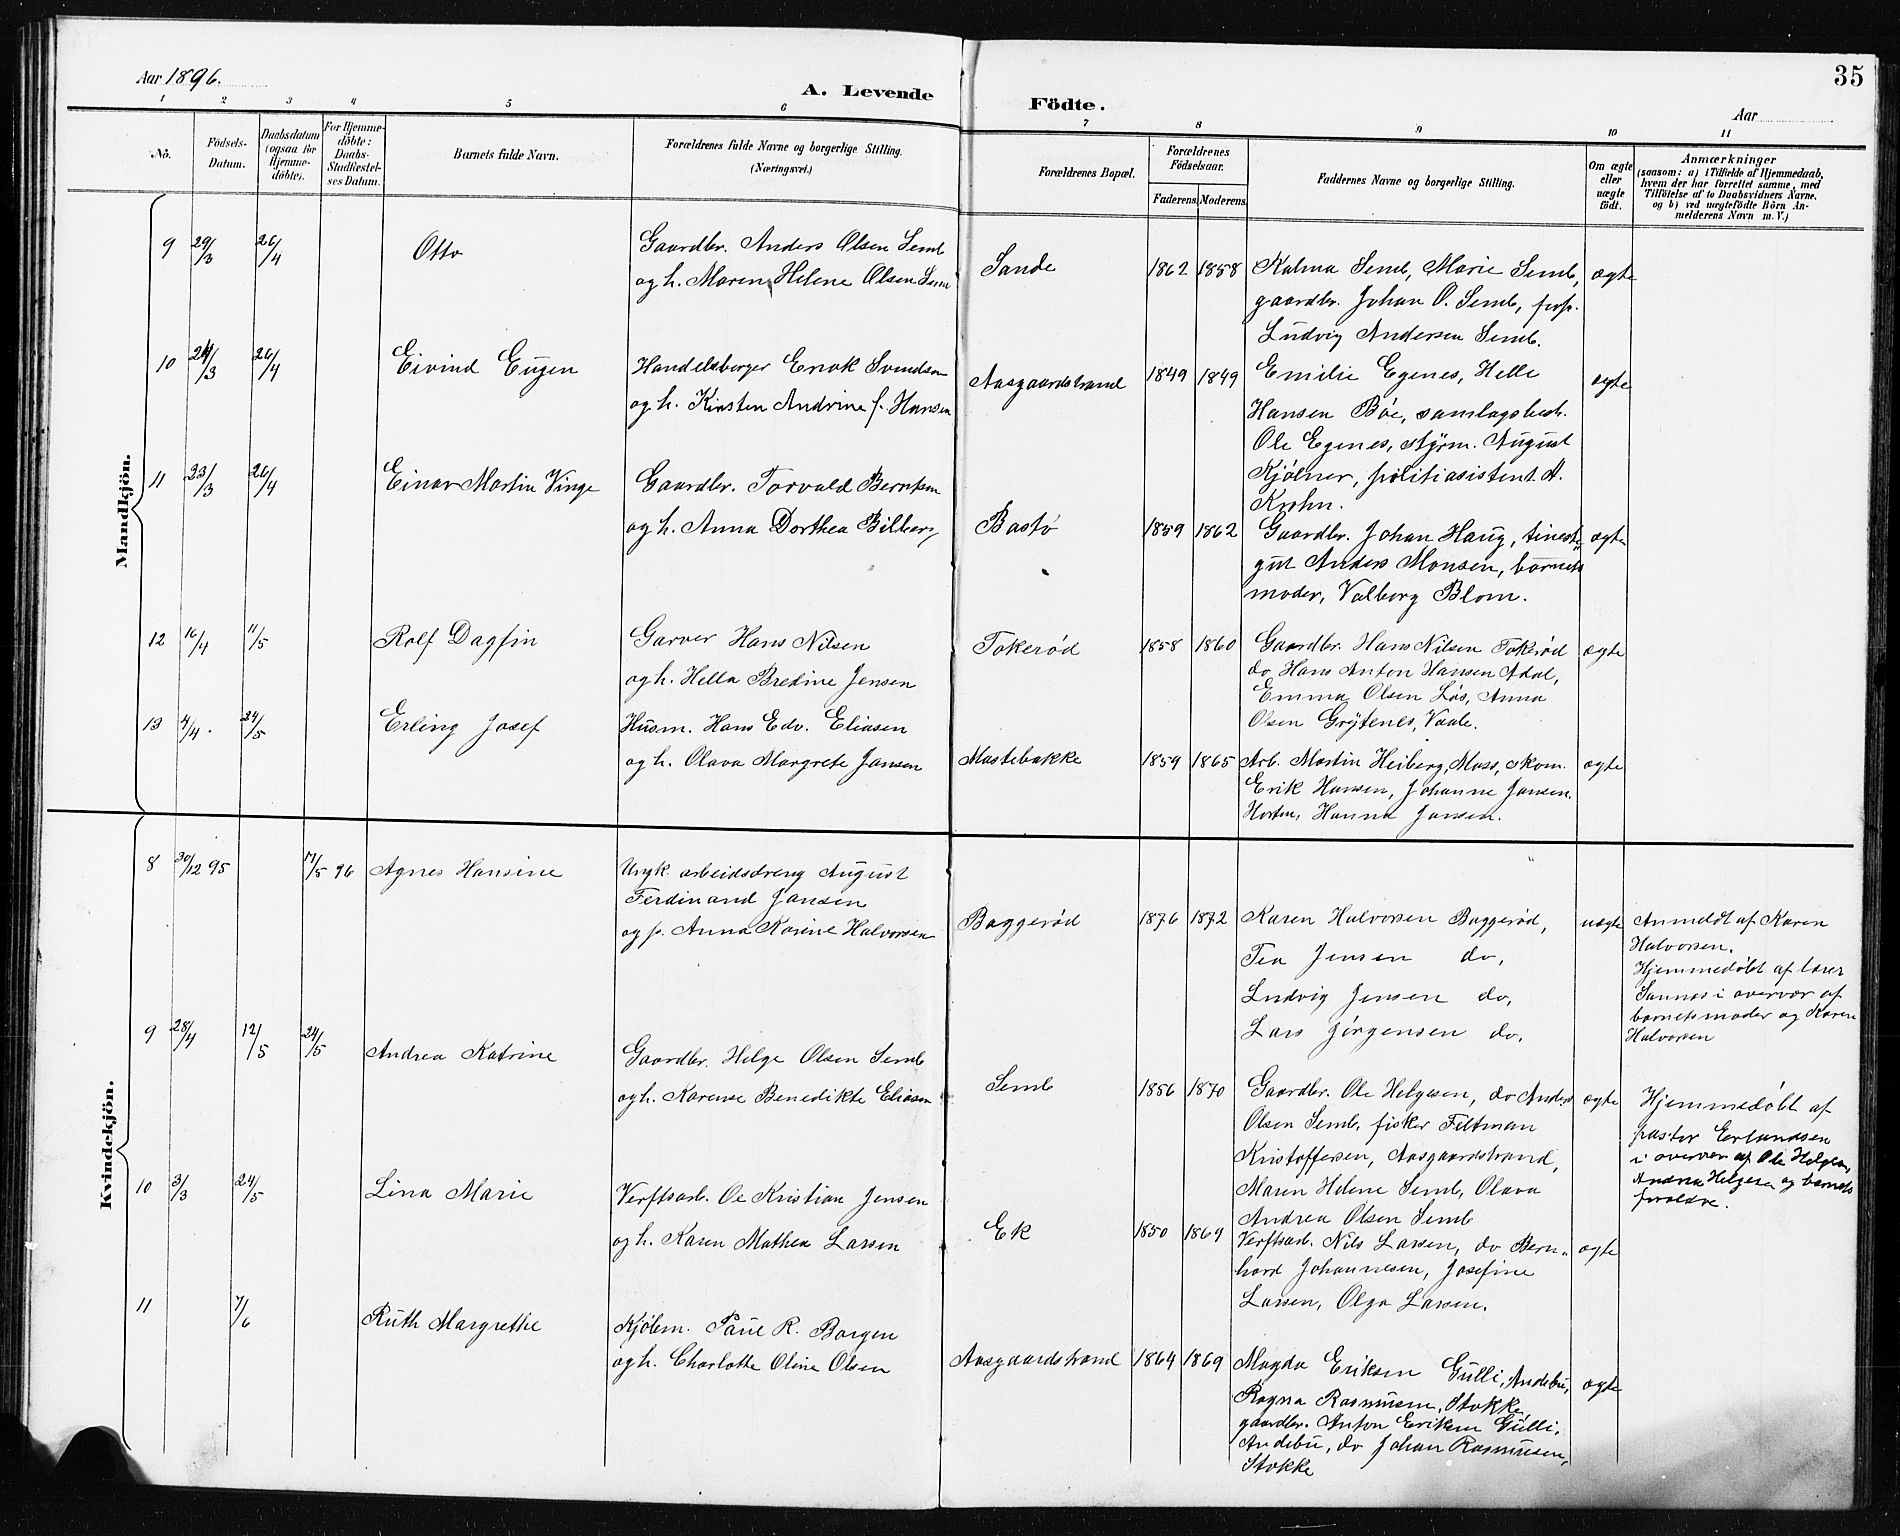 Aar 1896.
A. Levende
Födte.
Aar
35
1 2 3 4 5 6 7 8 9 10 11
No.
Födsels-Datum.
Daabsdatum (ogsaa for Hjemme-döbte).
For Hjemme-döbte: Daabs-Stadfæstel-ses Datum.
Barnets fulde Navn.
Forældrenes fulde Navne og borgerlige Stilling. (Næringsvei.)
Forældrenes Bopæl.
Forældrenes Födselsaar.
Faderens. Moderens.
Faddernes Navne og borgerlige Stilling.
Om ægte eller uægte födt.
Anmærkninger
(saasom: a) i Tilfælde af Hjemmedaab, hvem der har forrettet samme, med Tilföielse af to Daabsvidners Navne, og b) ved uægtefödte Börn An-melderens Navn m. V.)
Mandkjön.
9 29/3 26/4 Otto
Gaardbr. Anders Olsen Semb
og h. Maren Helene Olsen Sem
Sande 1862 1858
Kalma Semb, Marie Semb,
gaardbr. Johan O. Semb,
Ludvig Andersen Semb.
ægte
10 24/3 26/4 Eivind Eugen
Handelsborger Enok Svendsen
og h. Kirsten Andrine f. Hansen
Aasgaardstrand 1849 1849
Emilie Egenes, Helle
Hansen Bøe, samlagsbest.
Ole Egenes, styrm. August
Kjølner, politiasistent A.
Krohn.
ægte
11 23/3 26/4 Einar Martin Vinge
Gaardbr. Torvald Berntsen
og h. Anna Dorthea Bilberg
Bastø 1859 1862
Gaardbr. Johan Haug, tineste-
gut Anders Monsen, barnets
moder, Valborg Blom.
ægte
12 16/4 11/5 Rolf Dagfin
Garver Hans Nilsen
og h. Hella Bredine Jensen
Tokerød 1858 1860
Gaardbr. Hans Nilsen Tokerød
do Hans Anton Hansen Adal,
Emma Olsen Løs, Anna
Olsen Grøjtenes, Vaale.
ægte
13 4/4. 24/5 Erling Josef
Husm. Hans Edv. Eliasen
og h. Olava Margrete Jansen
Mastebakke 1859 1865
Arb. Martin Heiberg, Moss, skom.
Erik Hansen, Johanne Jansen
Horten, Hanna Jansen.
ægte
Kvindekjön.
8 30/12 95 17/5 96 Agnes Hansine
Ungk. arbeidsdreng August
Ferdinand Jansen
og p. Anna Karine Halvorsen
Baggerød 1876 1872
Karen Halvorsen Baggerød,
Tea Jensen do,
Ludvig Jensen do,
Lars Jørgensen do,
uægte
Anmeldt af Karen
Halvorsen.
Hjemmedøbt af lærer
Sannes i overvær af
barnets moder og Karen
Halvorsen
9 28/4 12/5 24/5 Andrea Katrine
Gaardbr. Helge Olsen Semb
og h. Karense Benedikte Eliasen
Semb 1856 1870
Gaardbr. Ole Helgesen, do Anders
Olsen Semb, fisker Feltman
Kristoffersen, Aasgaardstrand,
Maren Helene Semb, Olava
Andrea Olsen Semb
ægte
Hjemmedøbt af
pastor Erlandsen
i overvær af Ole Helgesen,
Andrea Helgesen og barnets
forældre.
10 3/3 24/5 Lina Marie
Verftsarb. Ole Kristian Jensen
og h. Karen Mathea Larsen
Ek 1850 1869
Verftsarb. Nils Larsen, do Bern-
hard Johannesen, Josefine
Larsen, Olga Larsen.
ægte
11 7/6 Ruth Margrethe
Kjøbm. Paul R. Borgen
og h. Charlotte Oline Olsen
Aasgaardstrand 1864 1869
Magda Eriksen Gulli, Andebu,
Ragna Rasmussen, Stokke,
gaardbr. Anton Eriksen Gulli,
Andebu, do Johan Rasmussen,
Stokke
ægte